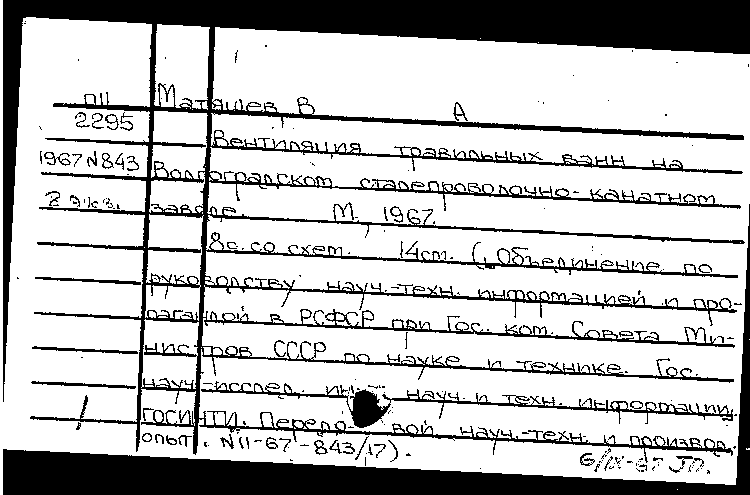 П11 Матяшев, В А
2295
Вентиляция травильных ванн на
1967 N843 Волгоградском сталепроволочно-канатном
2 экз. заводе. М., 1967.
8с. со схем. 14см. (Объединение по
руководству науч.-техн. информацией и про-
пагандой в РСФСР при Гос. ком. Совета Ми-
нистров СССР по науке и технике. Гос.
науч.-исслед. ин-т науч. и техн. информации.
ГОСИНТИ. Передовой науч.-техн. и производ.
опыт. N11-67-843/17).
6/IX-67